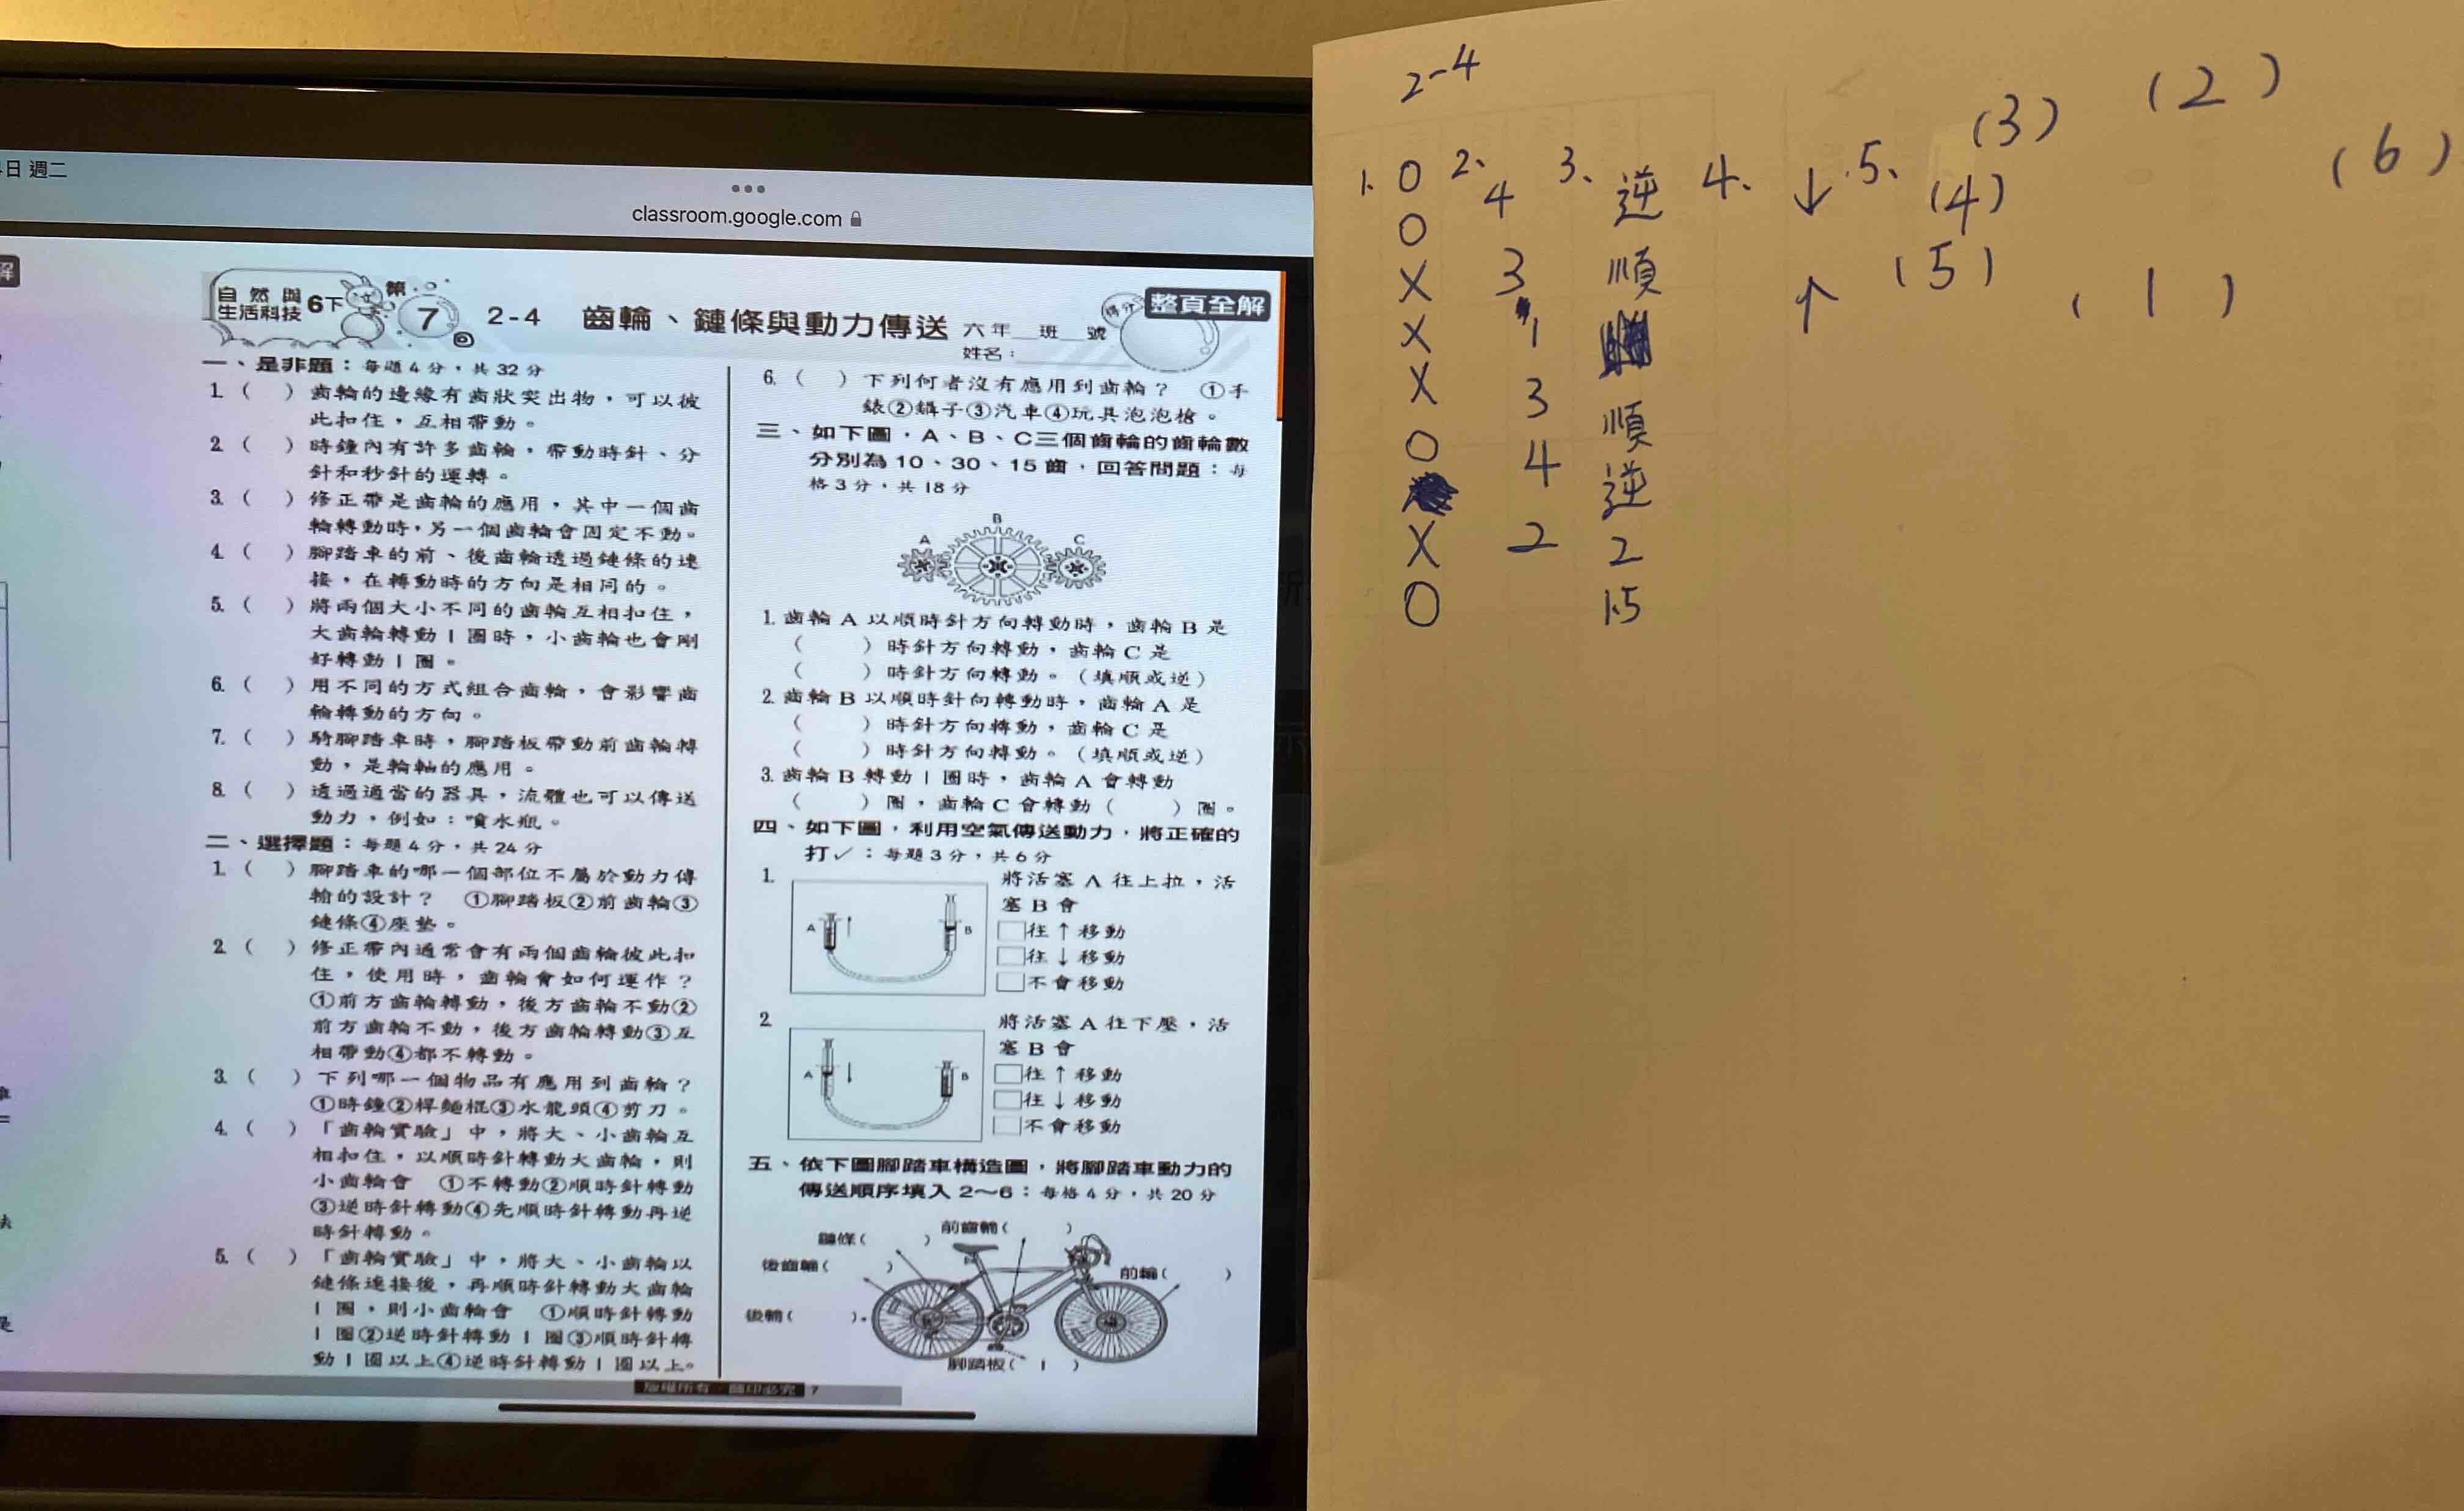 日 週二
classroom.google.com
解
自然與
生活科技 6下
第 7 回
2-4 齒輪、鏈條與動力傳送
六年__班__號
姓名:
得分
整頁全解
一、是非題:每題4分,共32分
1. ( ) 齒輪的邊緣有齒狀突出物,可以彼
此扣住,互相帶動。
2. ( ) 時鐘內有許多齒輪,帶動時針、分
針和秒針的運轉。
3. ( ) 修正帶是齒輪的應用,其中一個齒
輪轉動時,另一個齒輪會固定不動。
4. ( ) 腳踏車的前、後齒輪透過鏈條的連
接,在轉動時的方向是相同的。
5. ( ) 將兩個大小不同的齒輪互相扣住,
大齒輪轉動1圈時,小齒輪也會剛
好轉動1圈。
6. ( ) 用不同的方式組合齒輪,會影響齒
輪轉動的方向。
7. ( ) 騎腳踏車時,腳踏板帶動前齒輪轉
動,是輪軸的應用。
8. ( ) 透過適當的器具,流體也可以傳送
動力,例如:噴水瓶。
二、選擇題:每題4分,共24分
1. ( ) 腳踏車的哪一個部位不屬於動力傳
輸的設計? ①腳踏板②前齒輪③
鏈條④座墊。
2. ( ) 修正帶內通常會有兩個齒輪彼此扣
住,使用時,齒輪會如何運作?
①前方齒輪轉動,後方齒輪不動②
前方齒輪不動,後方齒輪轉動③互
相帶動④都不轉動。
3. ( ) 下列哪一個物品有應用到齒輪?
①時鐘②桿麵棍③水龍頭④剪刀。
4. ( ) 「齒輪實驗」中,將大、小齒輪互
相扣住,以順時針轉動大齒輪,則
小齒輪會 ①不轉動②順時針轉動
③逆時針轉動④先順時針轉動再逆
時針轉動。
5. ( ) 「齒輪實驗」中,將大、小齒輪以
鏈條連接後,再順時針轉動大齒輪
1圈,則小齒輪會 ①順時針轉動
1圈②逆時針轉動1圈③順時針轉
動1圈以上④逆時針轉動1圈以上。
6. ( ) 下列何者沒有應用到齒輪? ①手
錶②鑷子③汽車④玩具泡泡槍。
三、如下圖,A、B、C三個齒輪的齒輪數
分別為10、30、15齒,回答問題:每
格3分,共18分
A B C
1. 齒輪A以順時針方向轉動時,齒輪B是
( )時針方向轉動,齒輪C是
( )時針方向轉動。(填順或逆)
2. 齒輪B以順時針向轉動時,齒輪A是
( )時針方向轉動,齒輪C是
( )時針方向轉動。(填順或逆)
3. 齒輪B轉動1圈時,齒輪A會轉動
( )圈,齒輪C會轉動( )圈。
四、如下圖,利用空氣傳送動力,將正確的
打✓:每題3分,共6分
1. 將活塞A往上拉,活
塞B會
A B
□往↑移動
□往↓移動
□不會移動
2. 將活塞A往下壓,活
塞B會
A B
□往↑移動
□往↓移動
□不會移動
五、依下圖腳踏車構造圖,將腳踏車動力的
傳送順序填入2~6:每格4分,共20分
前齒輪( )
鏈條( )
後齒輪( )
前輪( )
後輪( )
腳踏板( 1 )
版權所有・翻印必究 7
2-4
1. O 2、 4 3、 逆 4、 ↓ 5、 (3) (2)
(4) (6)
O 3 順 ↑ (5) (1)
X 1
X 3 順
X 4 逆
O 2 2
X 1.5
O